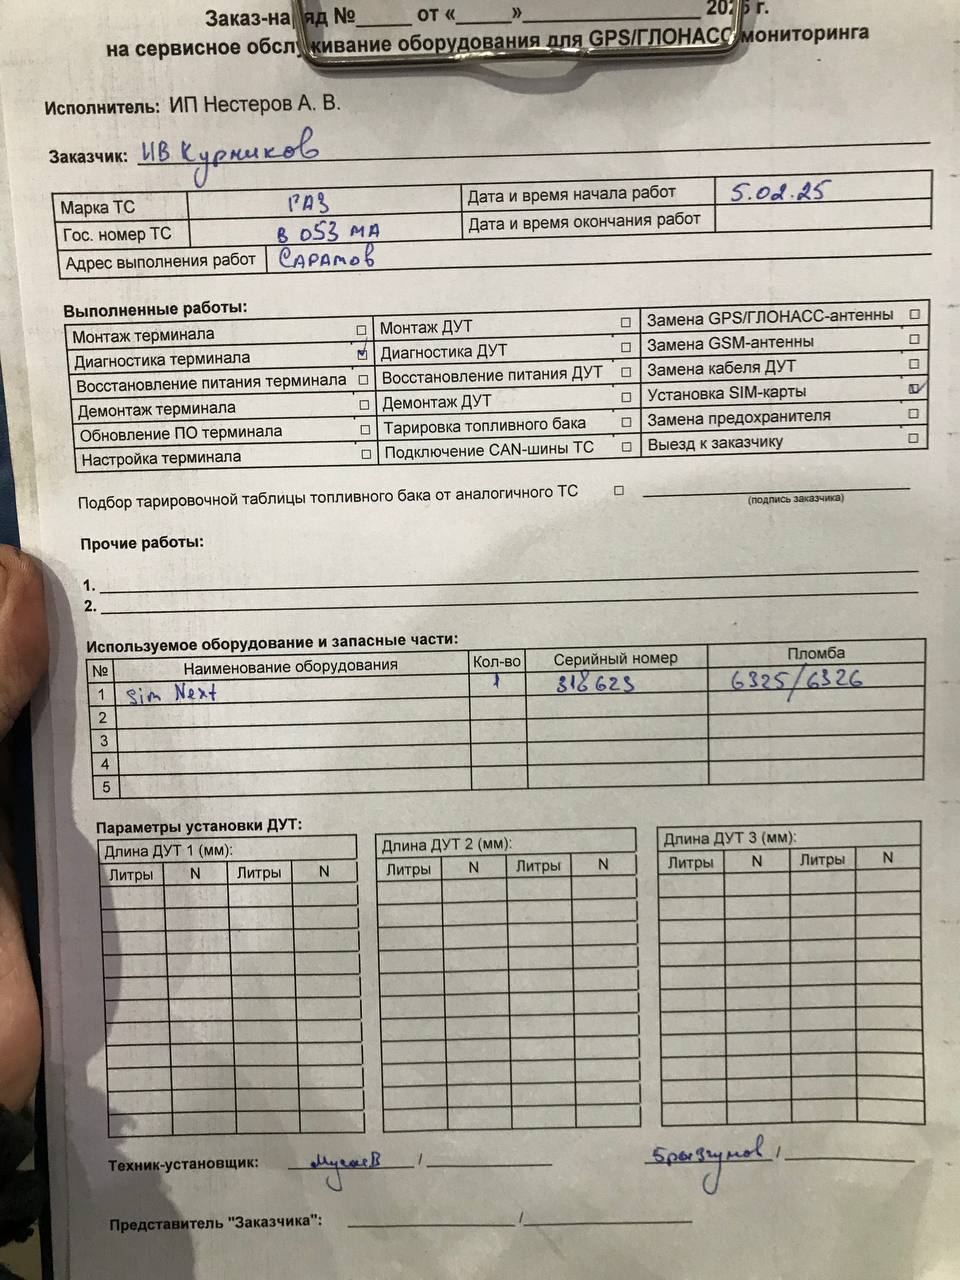 Заказ-наряд №_____ от «_____»________________ 2025 г.
на сервисное обслуживание оборудования для GPS/ГЛОНАСС мониторинга
Исполнитель: ИП Нестеров А. В.
Заказчик: ИВ Курников
Марка ТС ГАЗ Дата и время начала работ 5.02.25
Гос. номер ТС В 053 МА Дата и время окончания работ
Адрес выполнения работ Саратов
Выполненные работы:
Монтаж терминала ☐ Монтаж ДУТ ☐ Замена GPS/ГЛОНАСС-антенны ☐
Диагностика терминала ☑ Диагностика ДУТ ☐ Замена GSM-антенны ☐
Восстановление питания терминала ☐ Восстановление питания ДУТ ☐ Замена кабеля ДУТ ☐
Демонтаж терминала ☐ Демонтаж ДУТ ☐ Установка SIM-карты ☑
Обновление ПО терминала ☐ Тарировка топливного бака ☐ Замена предохранителя ☐
Настройка терминала ☐ Подключение CAN-шины ТС ☐ Выезд к заказчику ☐
Подбор тарировочной таблицы топливного бака от аналогичного ТС ☐
(подпись заказчика)
Прочие работы:
1.
2.
Используемое оборудование и запасные части:
№ Наименование оборудования Кол-во Серийный номер Пломба
1 Sim Next 1 318623 6325/6326
2
3
4
5
Параметры установки ДУТ:
Длина ДУТ 1 (мм): Длина ДУТ 2 (мм): Длина ДУТ 3 (мм):
Литры N Литры N Литры N Литры N Литры N Литры N
Техник-установщик: Мусаев / Брызгунов /
Представитель "Заказчика": /